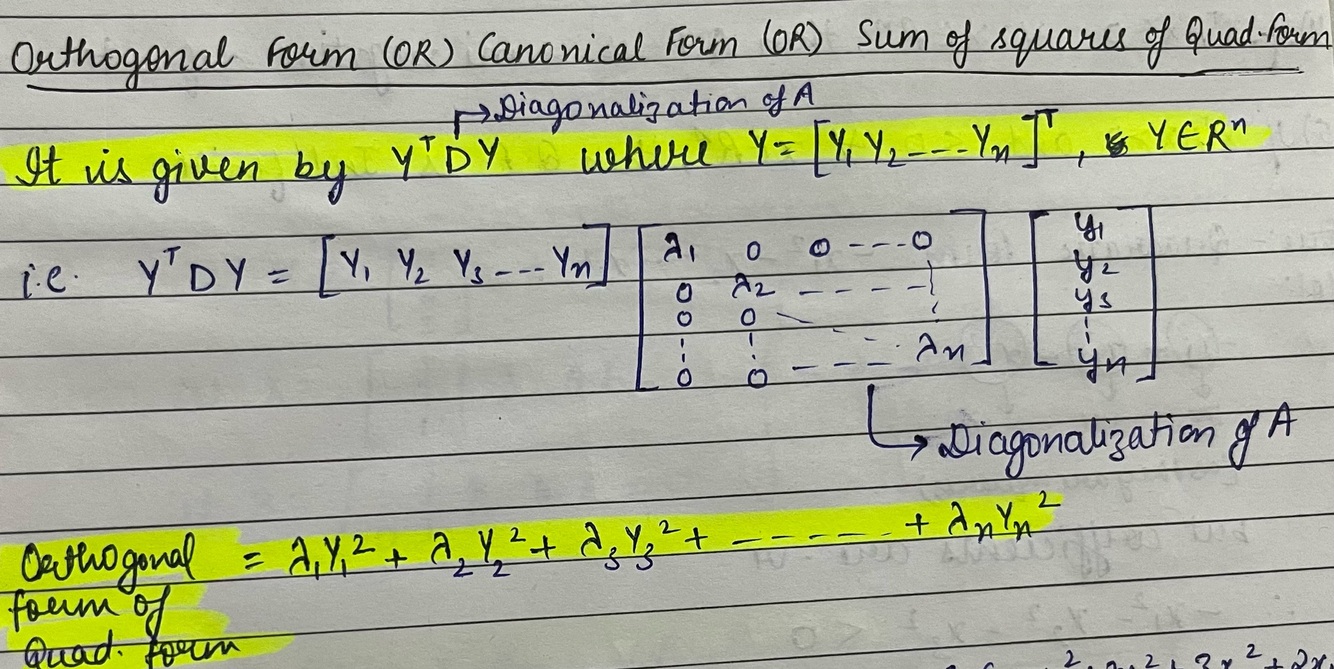 Orthogonal Form (OR) Canonical Form (OR) Sum of squares of Quad. Form
→ Diagonalization of A
It is given by Y^T D Y where Y = [Y₁ Y₂ --- Yₙ]^T, Y ∈ R^n
i.e. Y^T D Y = [Y₁ Y₂ Y₃ --- Yₙ] [λ₁ 0 0 --- 0
0 λ₂ - - - -
0 0
λₙ
0 0 - - -] [y₁
y₂
y₃
⋮
yₙ]
→ Diagonalization of A
Orthogonal = λ₁Y₁² + λ₂Y₂² + λ₃Y₃² + ------ + λₙYₙ²
form of
Quad. form